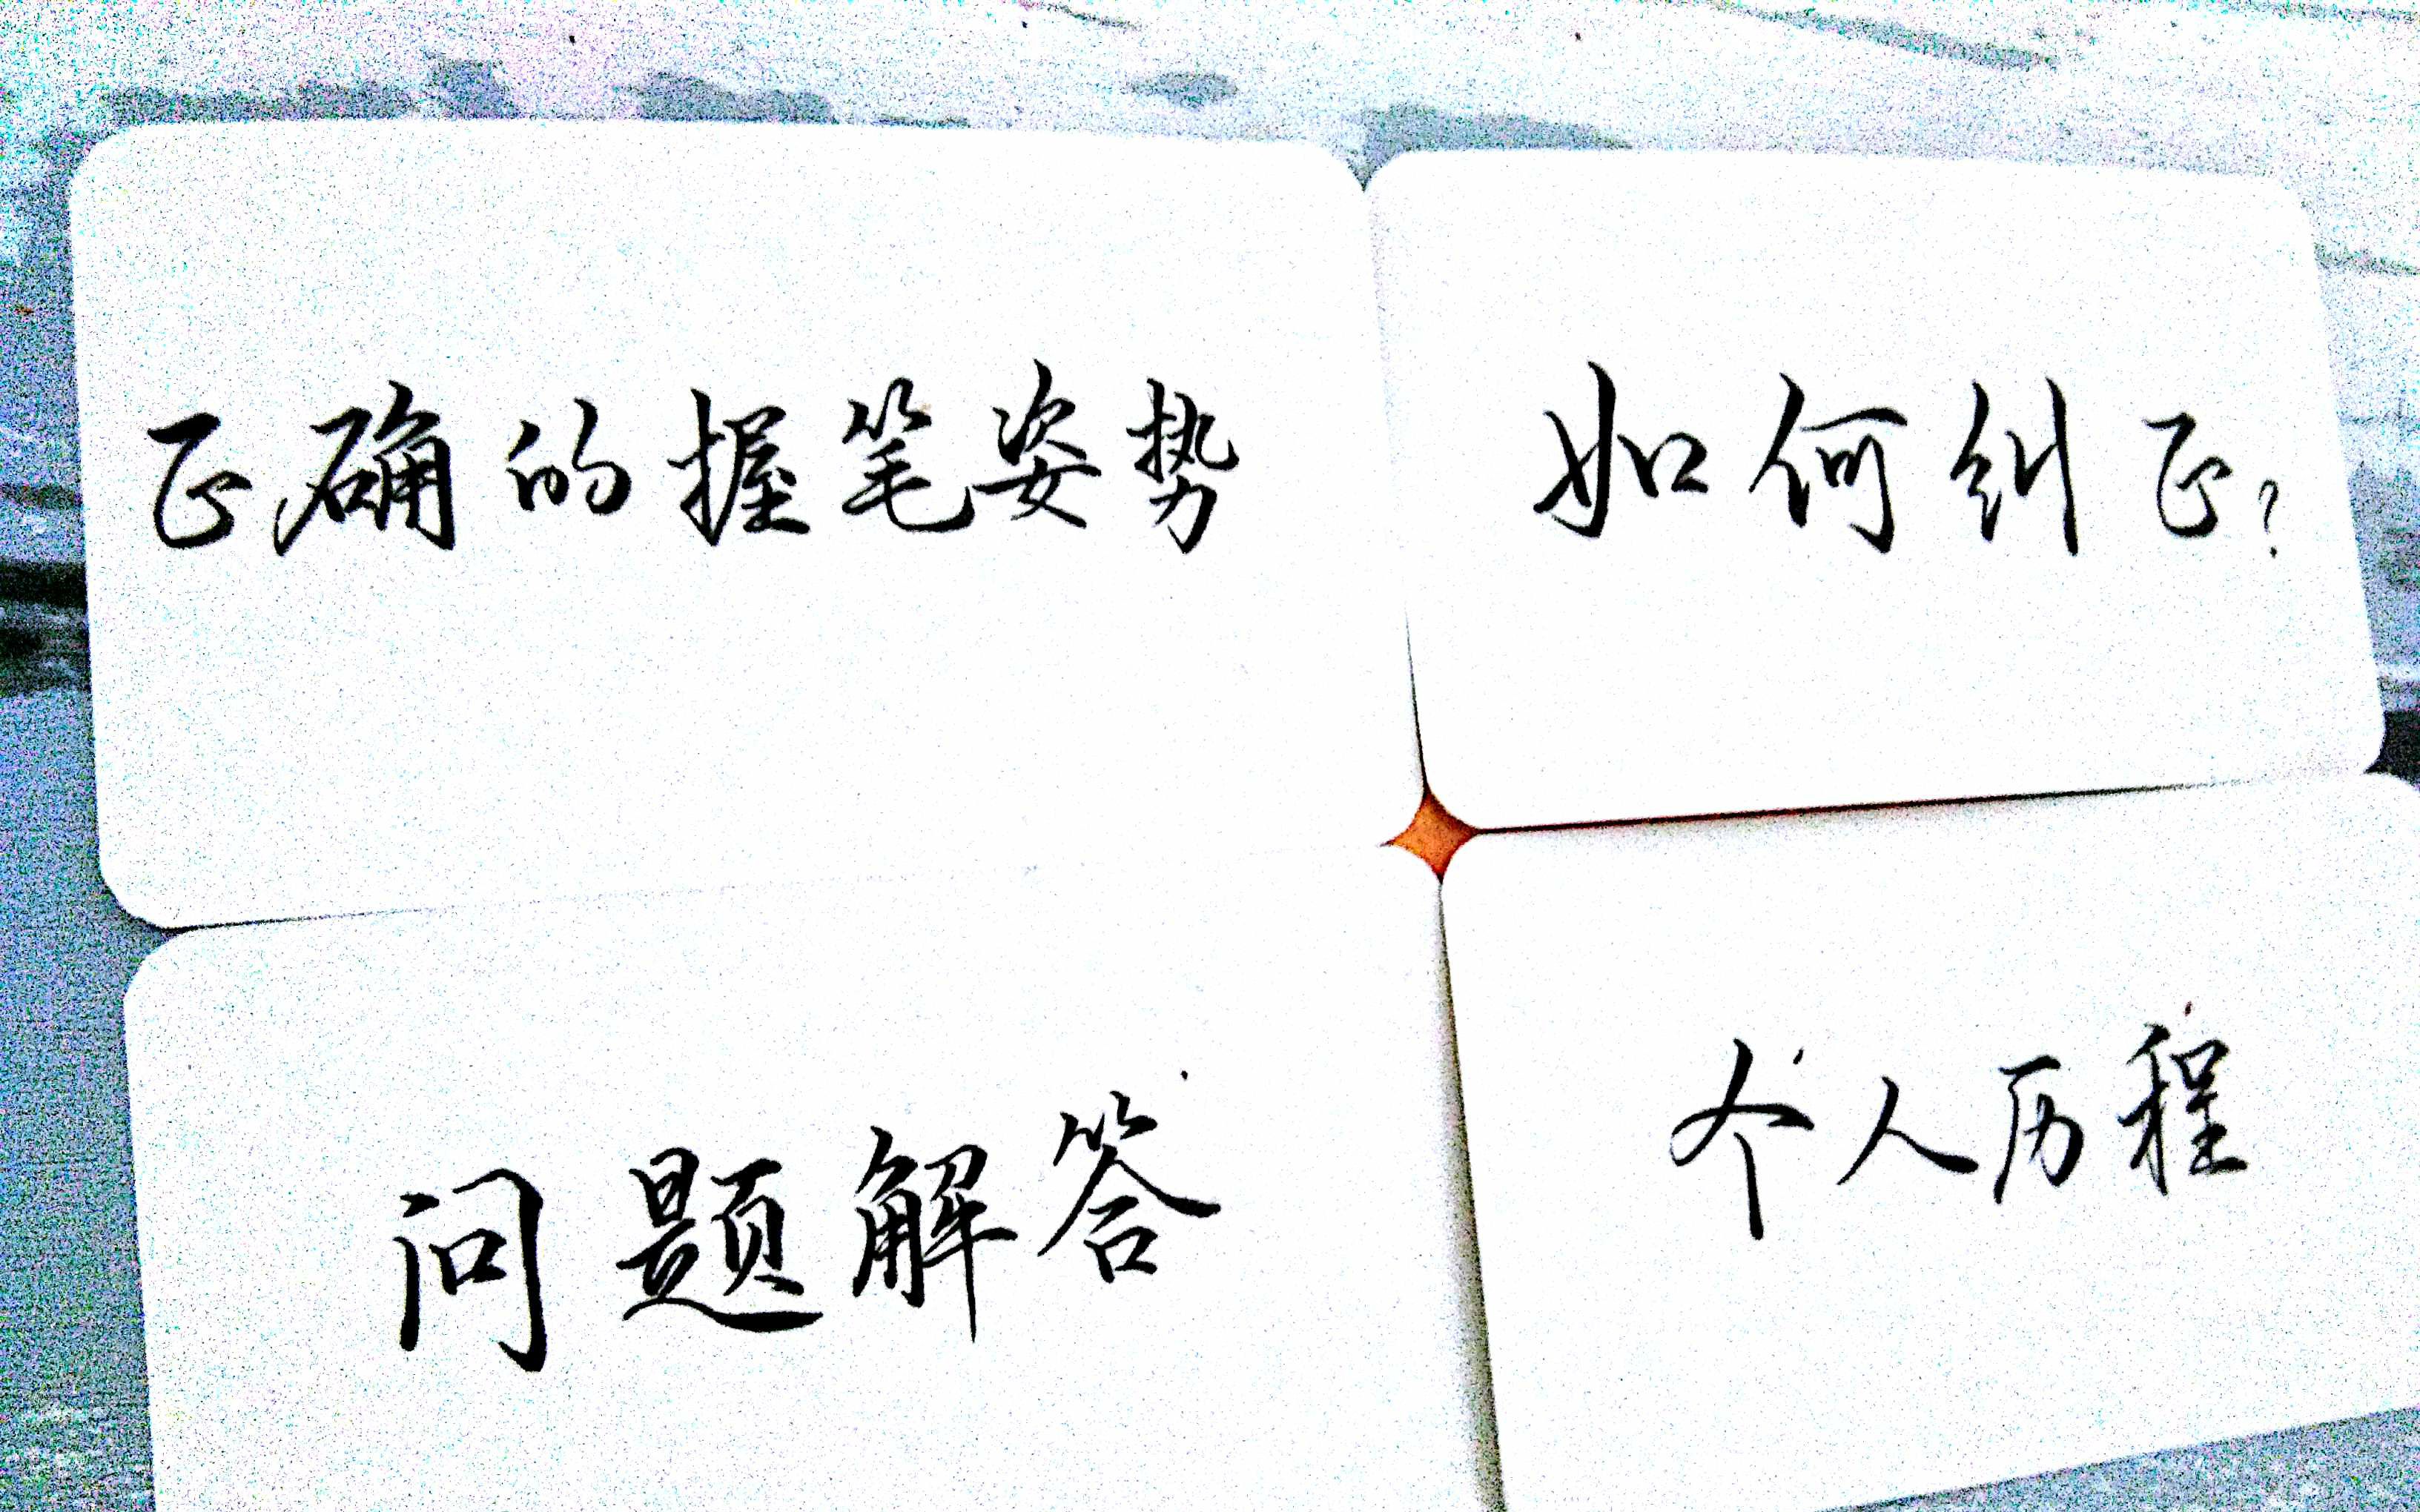 正确的握笔姿势
如何纠正?
问题解答
个人历程